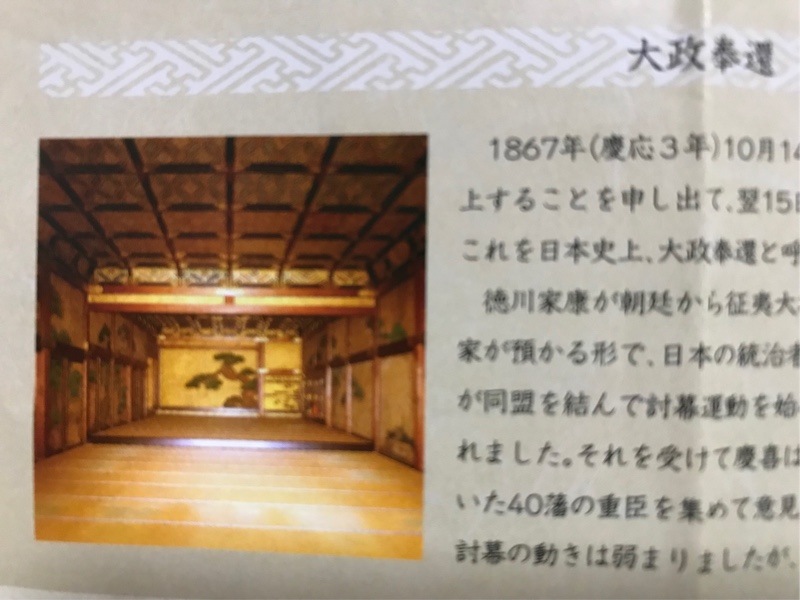 大政奉還
1867年(慶応3年)10月14
上することを申し出て、翌15日
これを日本史上、大政奉還と呼
徳川家康が朝廷から征夷大
家が預かる形で、日本の統治者
が同盟を結んで討幕運動を始
れました。それを受けて慶喜は
いた40藩の重臣を集めて意見
討幕の動きは弱まりましたが、